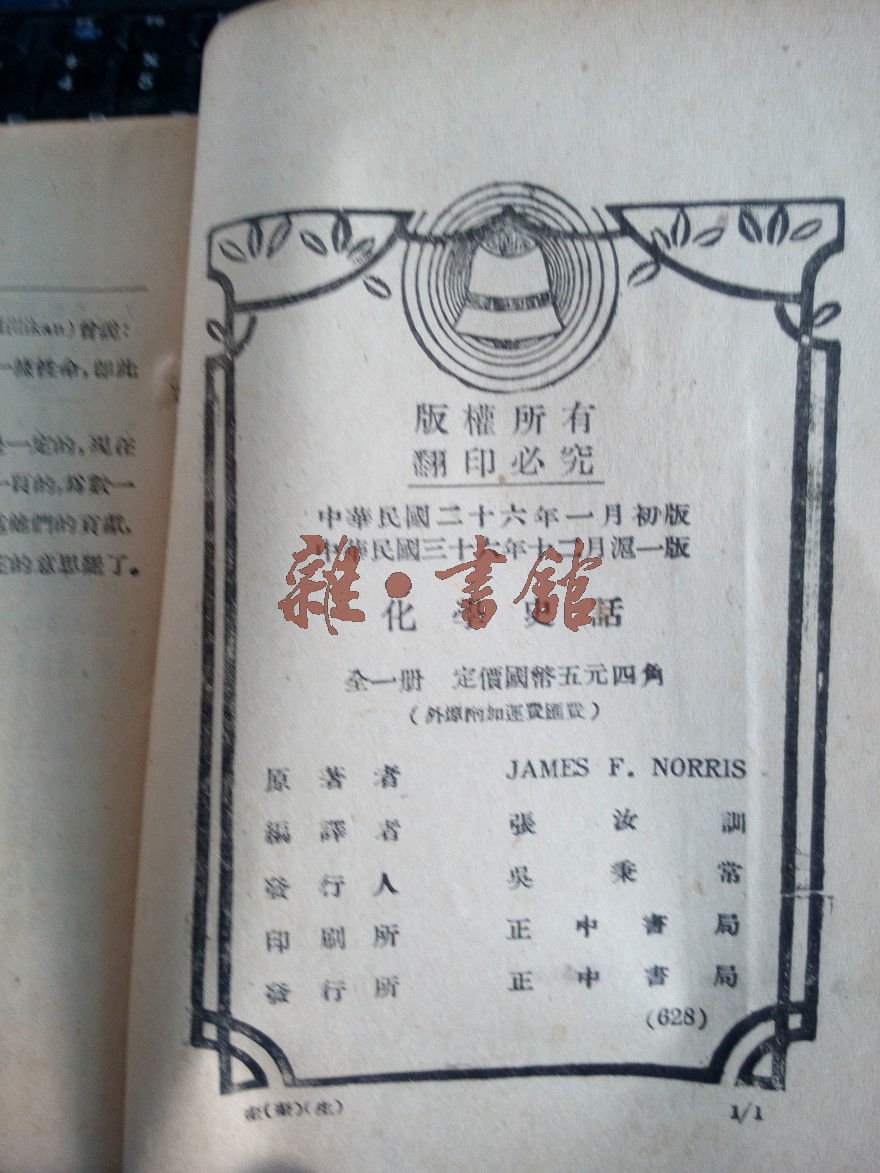 likan)曾說:
一條性命,卽此
一定的,現在
一頁的,爲數一
他們的貢獻
的意思罷了。
版權所有
翻印必究
中華民國二十六年一月初版
中華民國三十六年十二月滬一版
雜·書館
化學史話
全一册 定價國幣五元四角
(外埠酌加運費匯費)
原著者 JAMES F. NORRIS
編譯者 張汝訓
發行人 吳秉常
印刷所 正中書局
發行所 正中書局
(628)
1/1